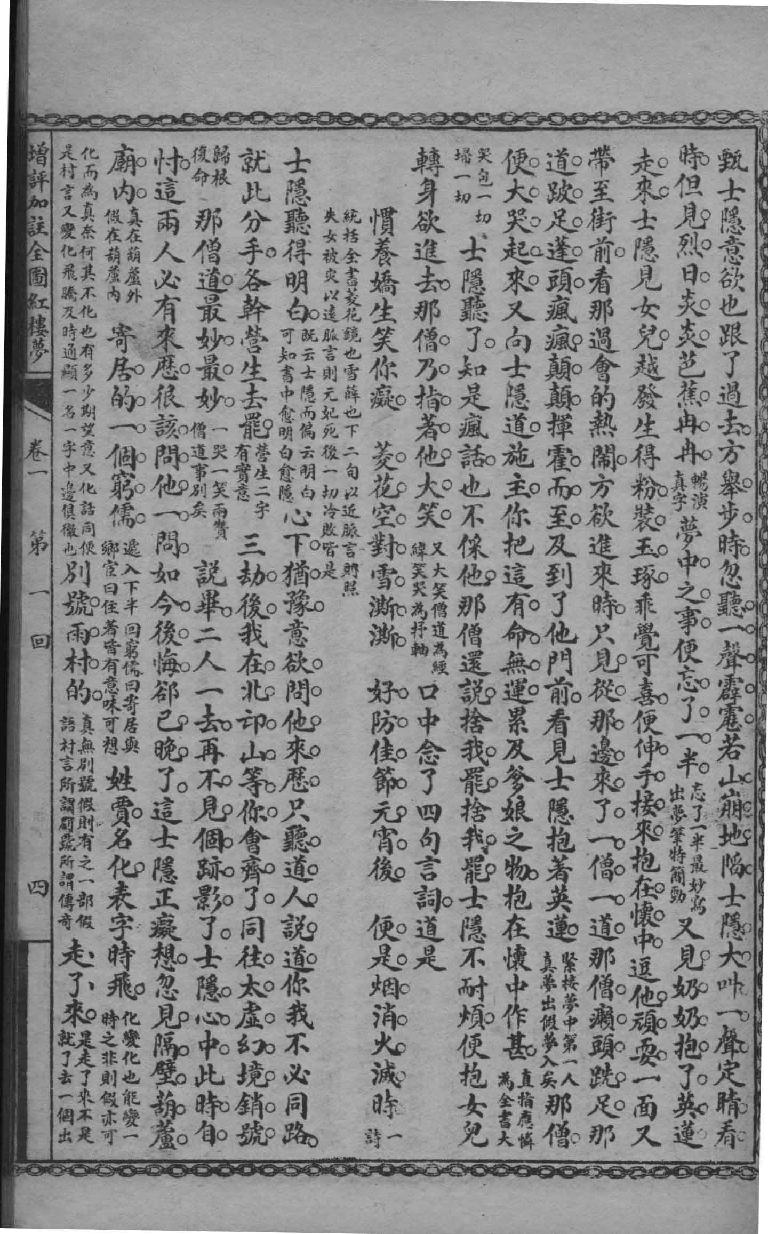 甄士隱意欲也跟了過去方舉步時忽聽一聲霹靂若山崩地陷士隱大叫一聲定睛看
時但見烈日炎炎芭蕉冉冉暢演真字夢中之事便忘了一半忘了一半最妙寫出夢筆特簡勁又見奶奶抱了英蓮
走來士隱見女兒越發生得粉裝玉琢乖覺可喜便伸手接來抱在懷中逗他頑耍一面又
帶至街前看那過會的熱鬧方欲進來時只見從那邊來了一僧一道那僧癩頭跣足那
道跛足蓬頭瘋瘋顛顛揮霍而至及到了他門前看見士隱抱著英蓮緊接夢中第一人真夢出假夢入矣那僧
便大哭起來又向士隱道施主你把這有命無運累及爹娘之物抱在懷中作甚直指應憐為全書大
哭包一切掃一切士隱聽了知是瘋話也不倸他那僧還說捨我罷捨我罷士隱不耐煩便抱女兒
轉身欲進去那僧乃指著他大笑又大笑僧道為經緯笑哭為抒軸口中念了四句言詞道是
慣養嬌生笑你癡　菱花空對雪澌澌　好防佳節元宵後　便是烟消火滅時一詩
統括全書菱花鏡也雪薛也下二句以近脈言將照失女被灾以遠脈言則元妃死後一切冷敗皆是
士隱聽得明白既云士隱而偏云明白可知書中愈明白愈隱心下猶豫意欲問他來歷只聽道人說道你我不必同路
就此分手各幹營生去罷營生二字有實意三劫後我在北邙山等你會齊了同往太虛幻境銷號
歸根復命那僧道最妙最妙一哭一笑兩贊僧道事別矣說畢二人一去再不見個跡影了士隱心中此時自
忖這兩人必有來歷很該問他一問如今後悔卻已晚了這士隱正癡想忽見隔壁葫蘆
廟內真在葫蘆外假在葫蘆內寄居的一個窮儒遞入下半回窮儒曰寄居與鄉宦曰住著皆有意味可想姓賈名化表字時飛化變化也能變一時之非則假亦可
化而為真奈何其不化也有多少期望意又化話同便是村言又變化飛騰及時通顯一名一字中邊俱徹也別號雨村的真無別號假則有之一部假語村言所謂罰發所謂傳奇走了來是走了來不是就了去一個出
增評加註全圖紅樓夢　卷一　第一回　四